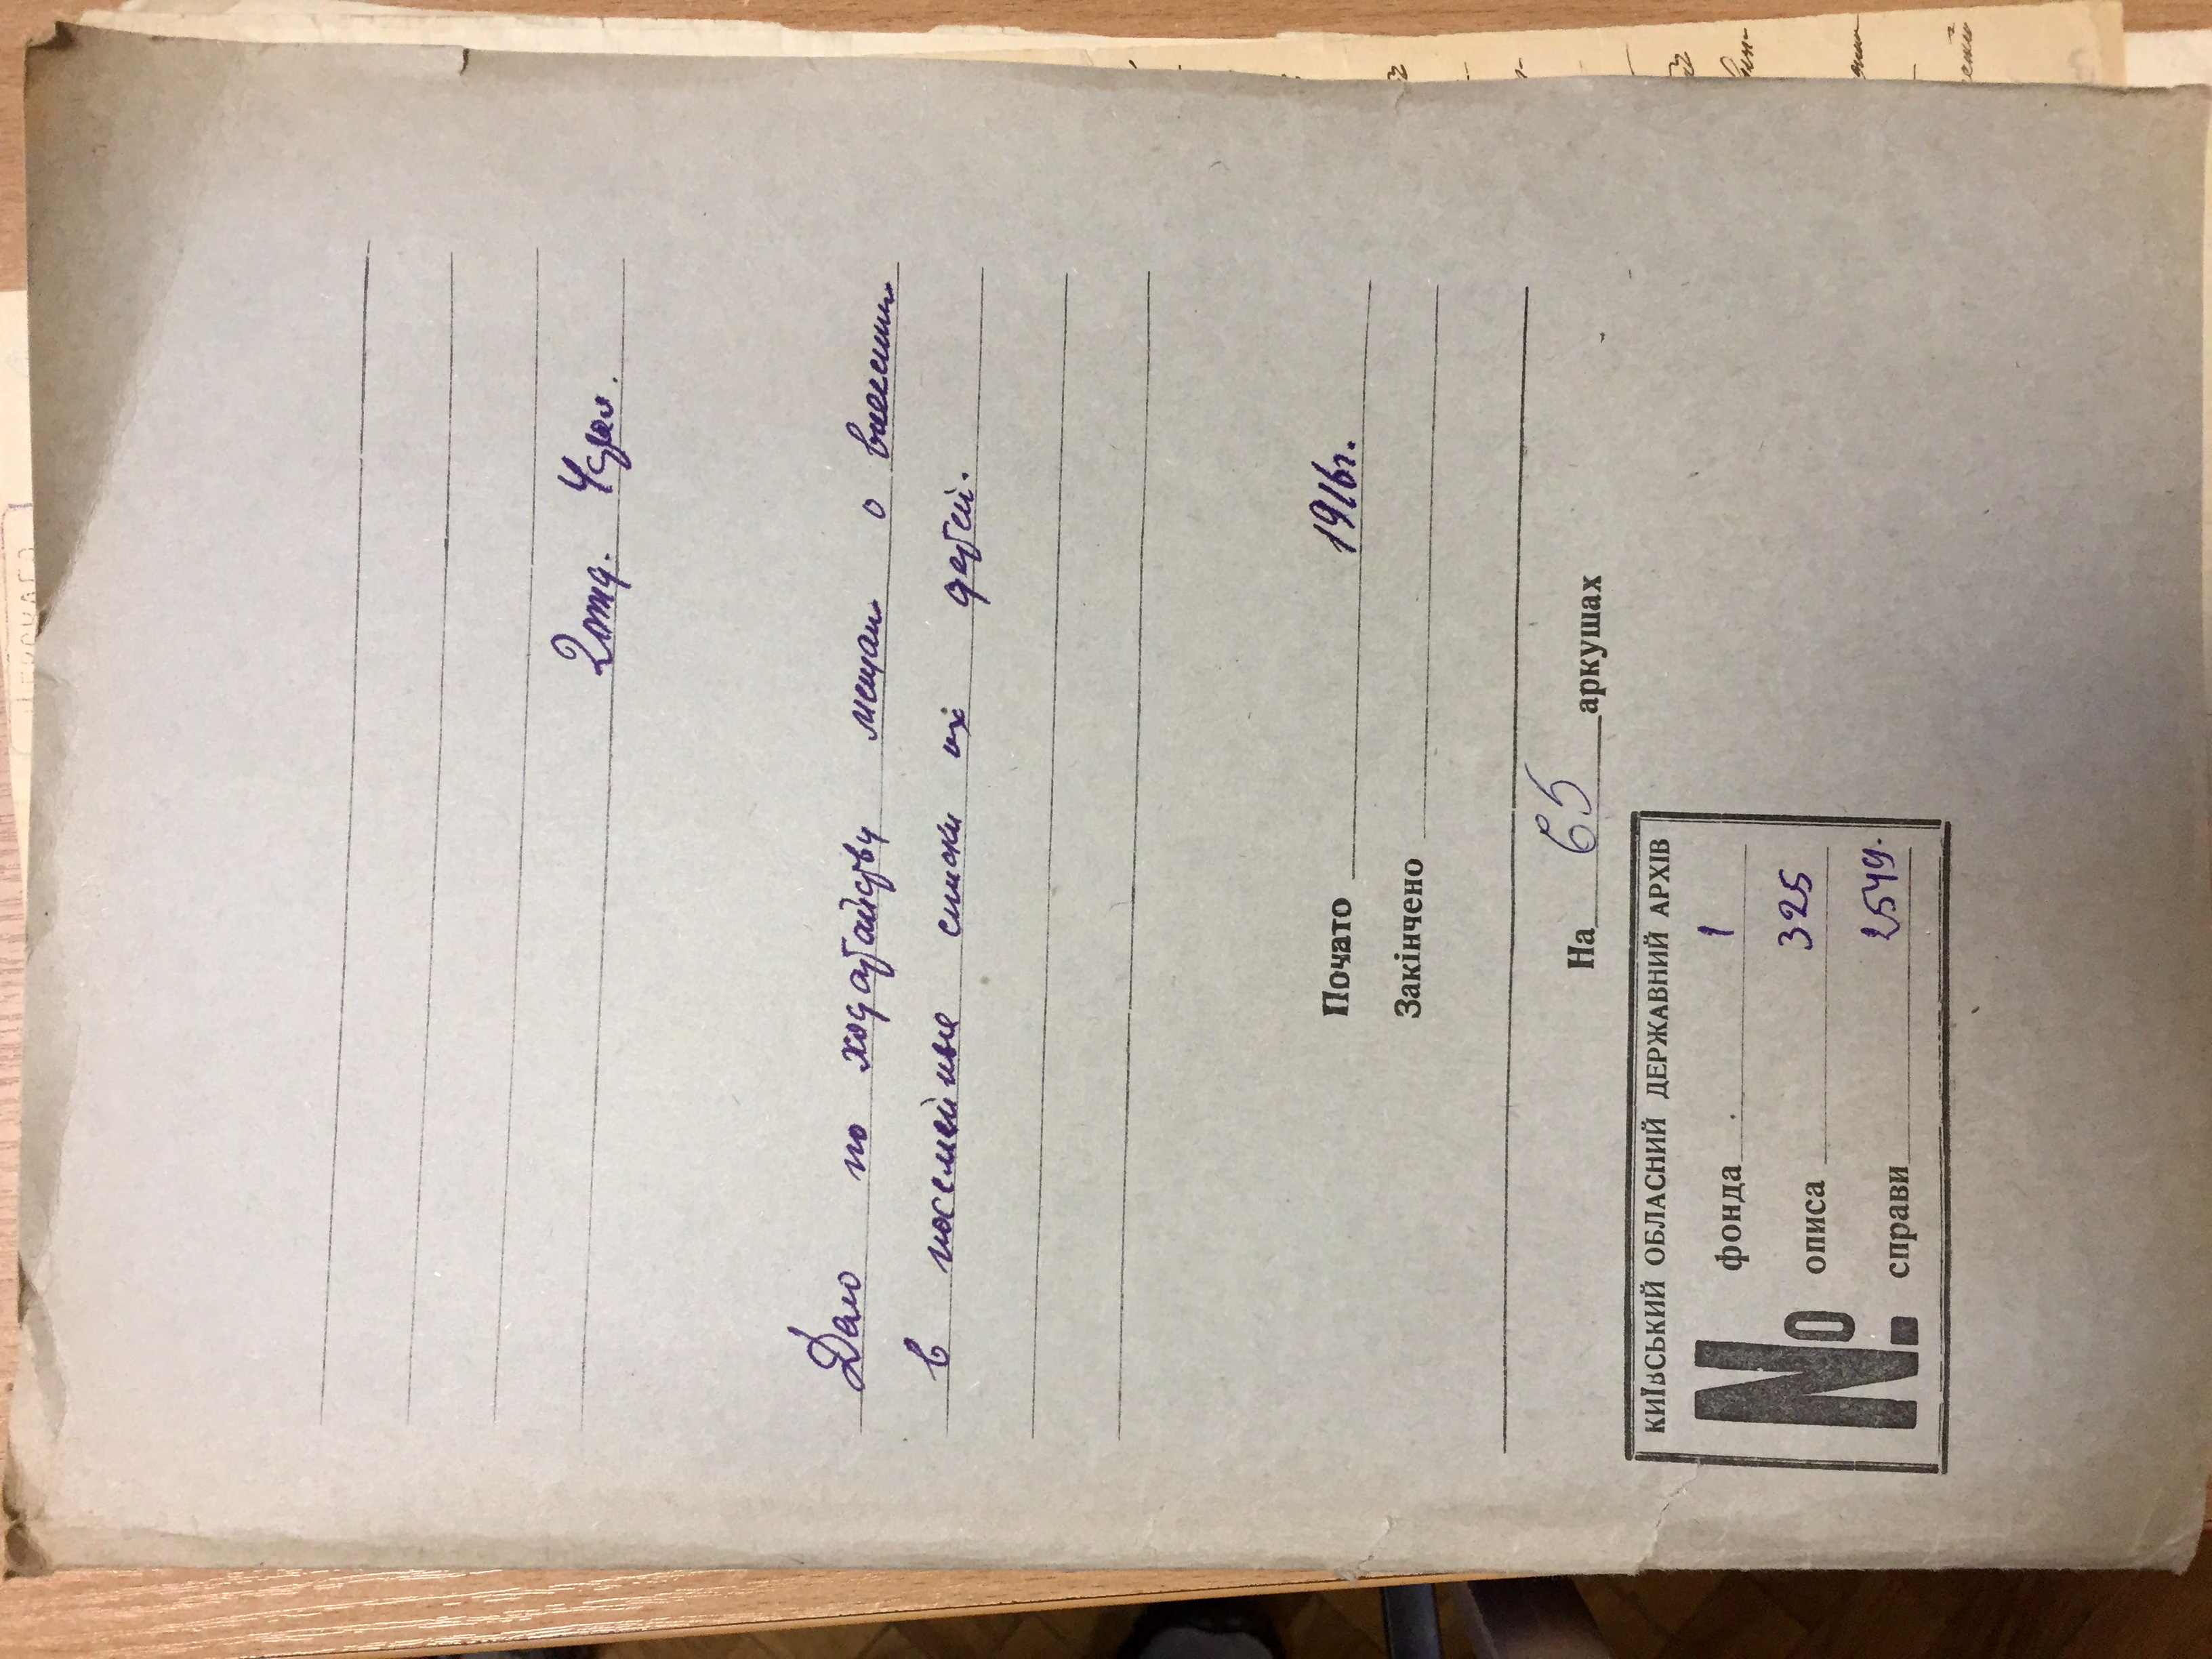 2 отд. 4 стол.
Дело по ходатайству мещан о внесении
в посемейные списки их детей.
Почато 1916г.
Закінчено
На 65 аркушах
КИЇВСЬКИЙ ОБЛАСНИЙ ДЕРЖАВНИЙ АРХІВ
№ фонда 1
описа 325
справи 2549.